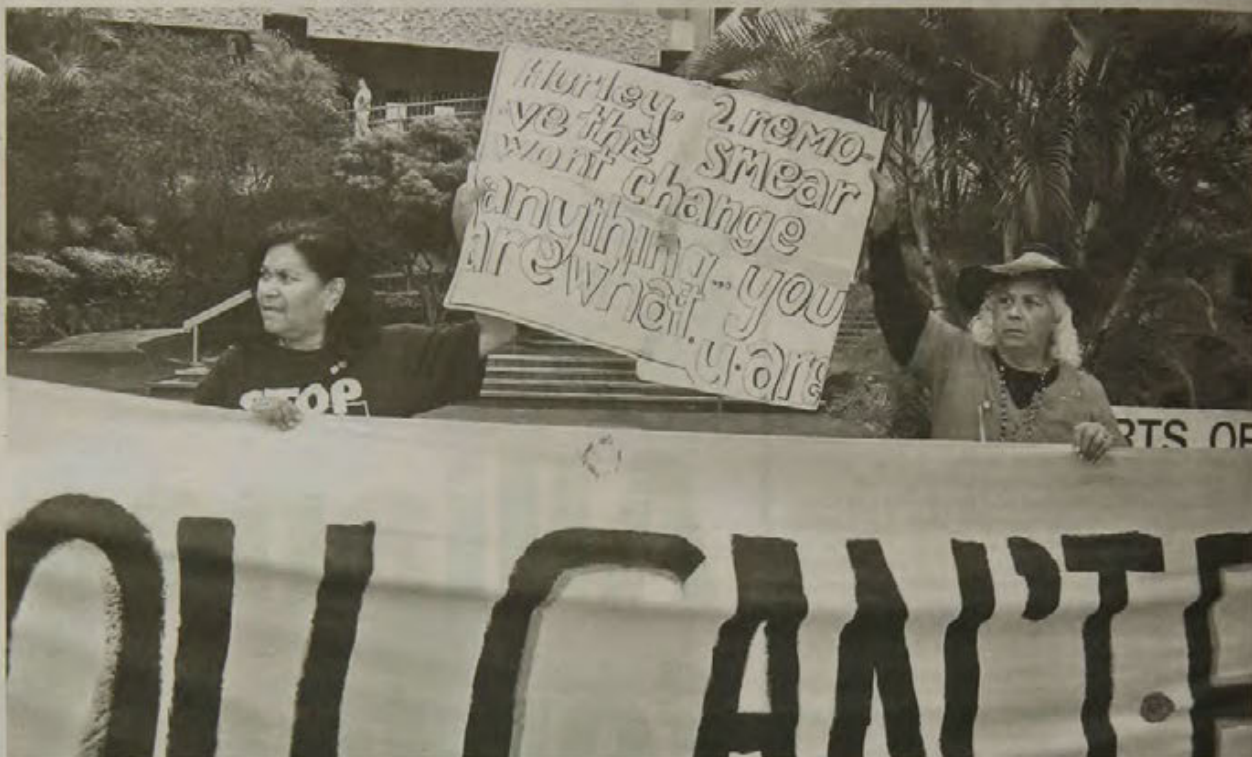 Hurley" 2.remo-
-ve the smear
wont change
anything... you
are what.
u.are
STOP
RTS OF
OU CAN'T